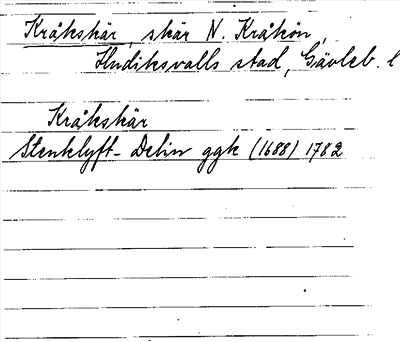 Kråkskär, skär N. Kråkön,
Hudiksvalls stad, Gävleb. l
Kråkskär
Stenklyft-Delin ggk (1688) 1782